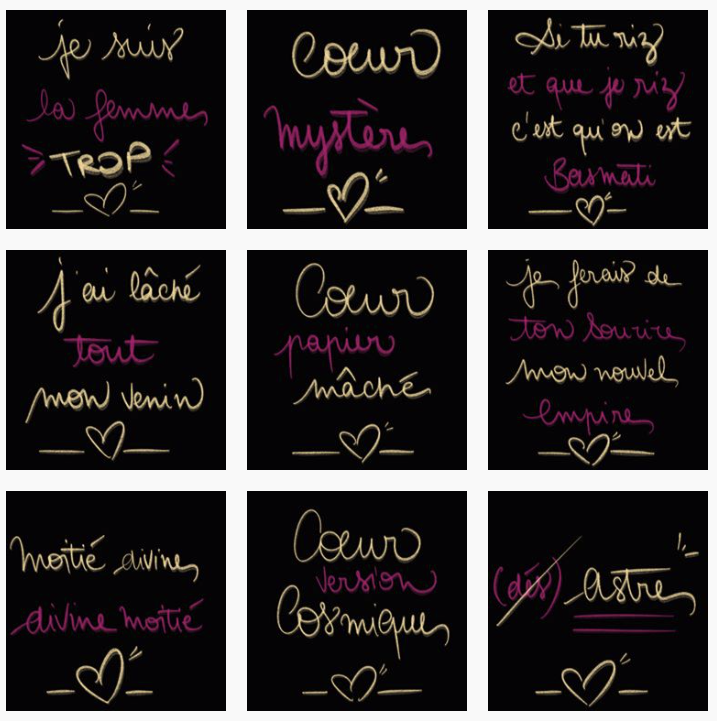 je suis
la femme
TROP
Cœur
mystère
Si tu riz
et que je riz
c'est qu'on est
Basmati
j'ai lâché
tout
mon venin
Cœur
papier
mâché
je ferais de
ton sourire
mon nouvel
empire
Moitié divine
divine moitié
Cœur
version
Cosmique
(dés) astre